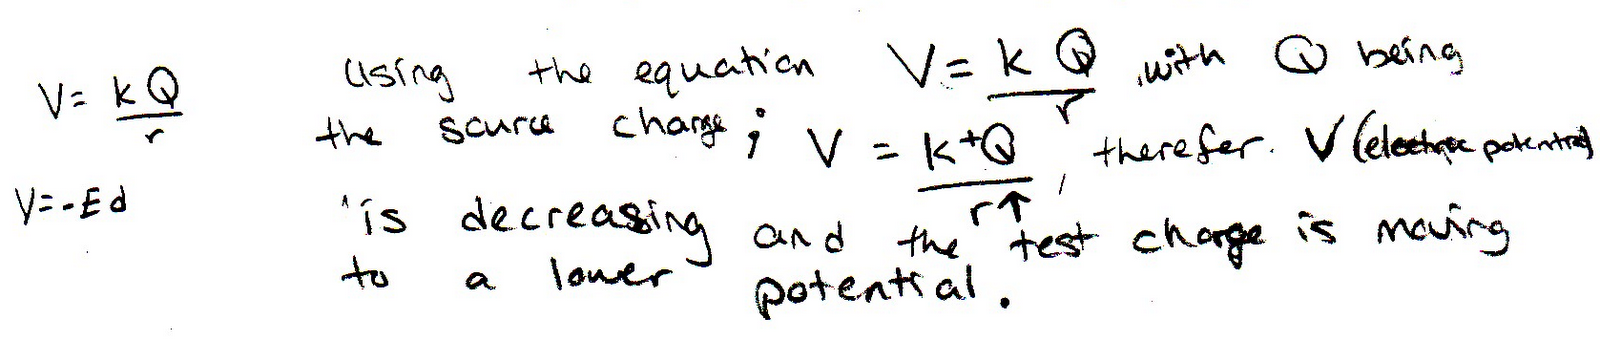 V = kQ/r
V=-Ed
Using the equation V = k Q/r, with Q being
the source charge; V = k+Q/r↑, therefor. V (electric potential)
is decreasing and the test charge is moving
to a lower potential.